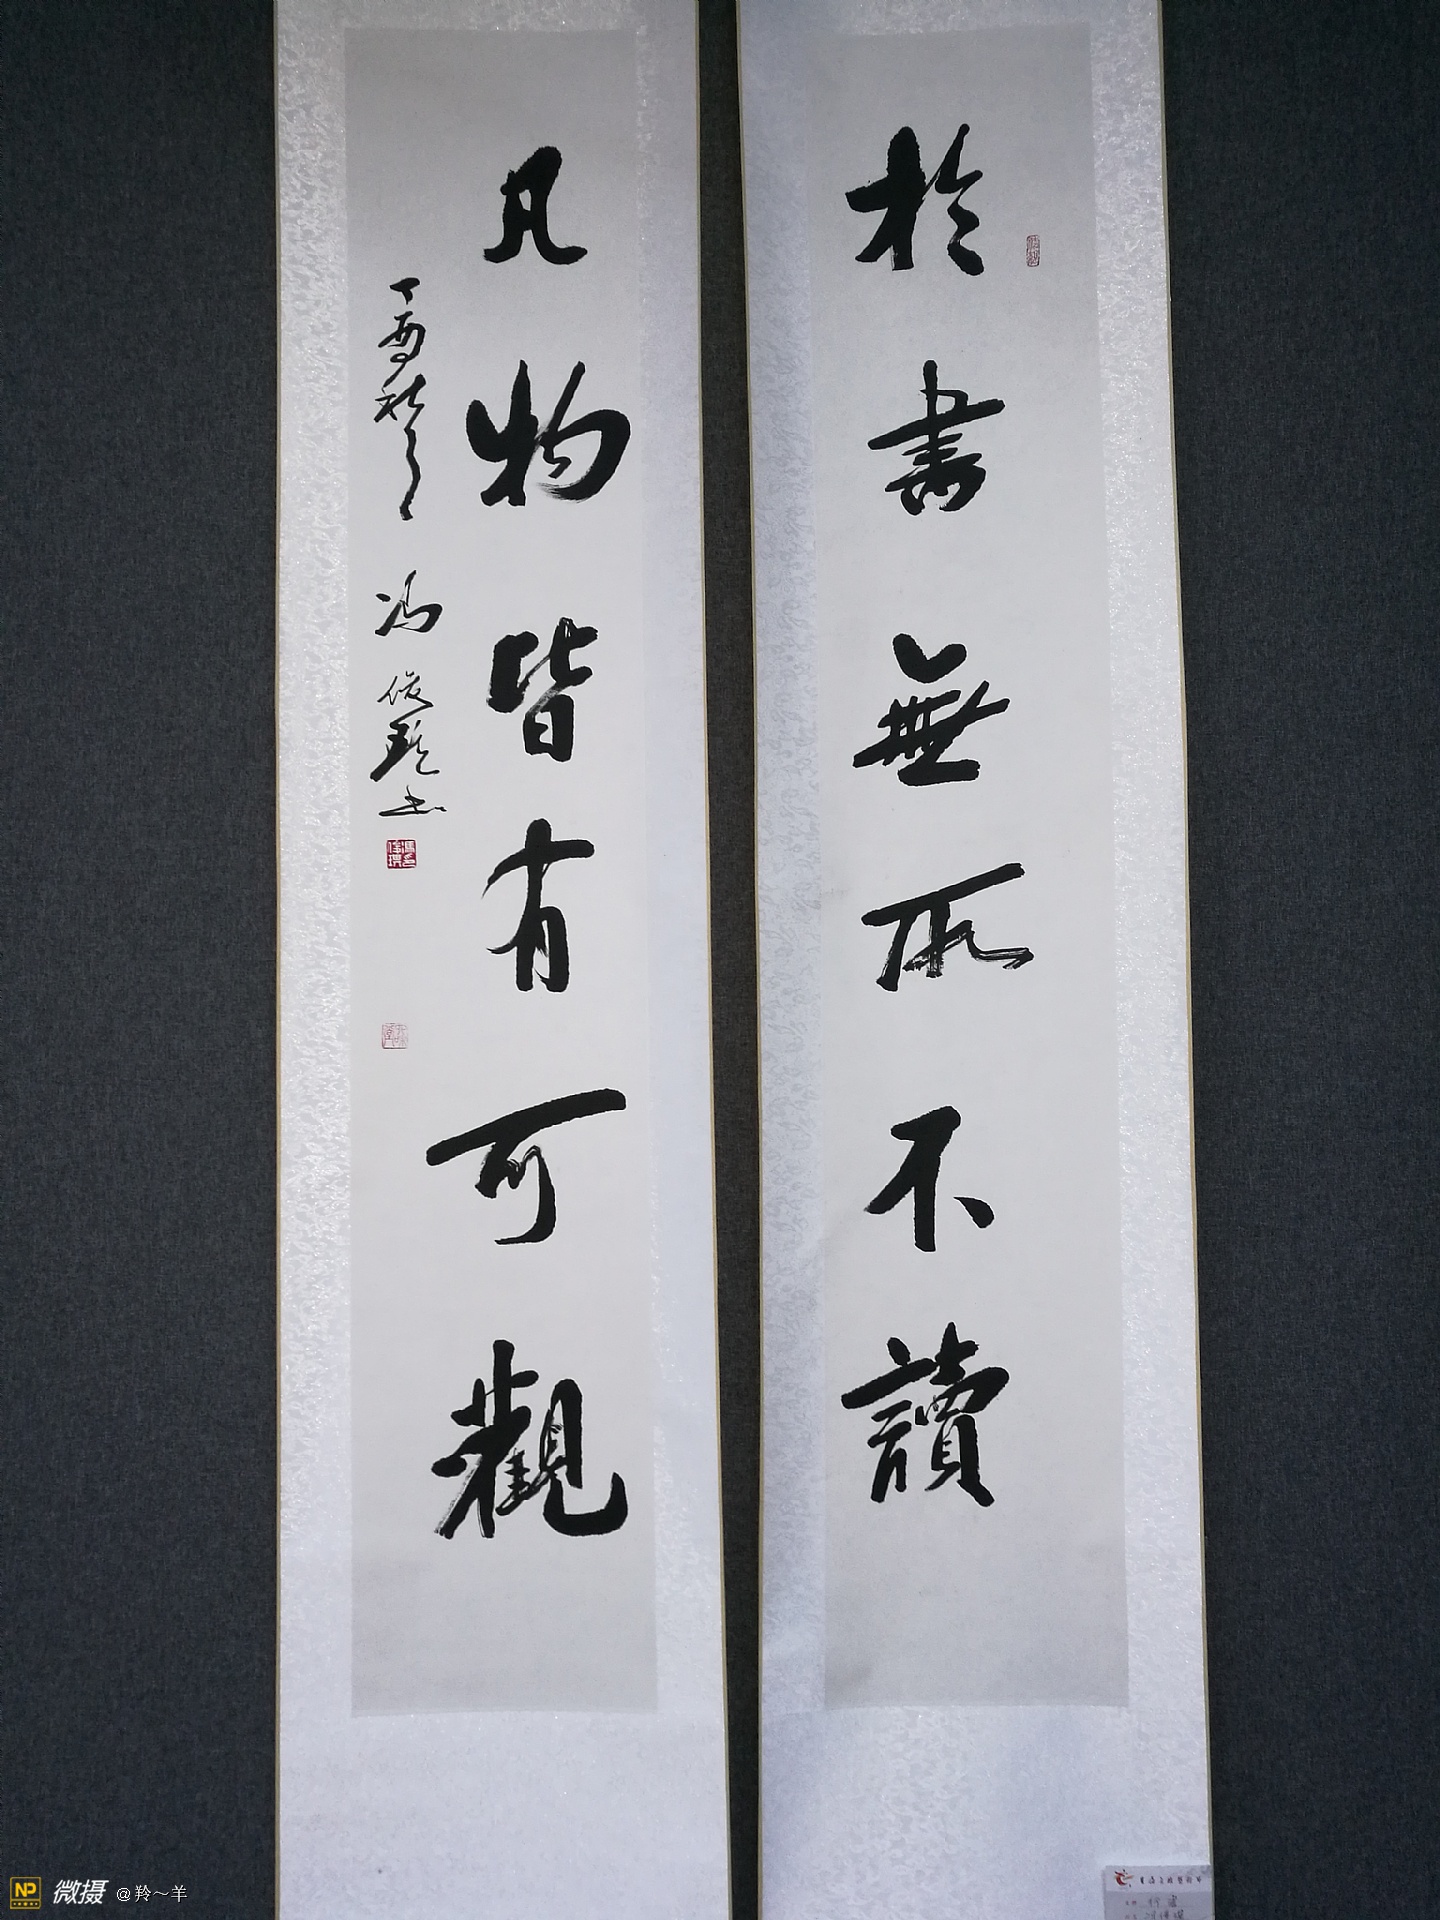 於書無所不讀
凡物皆有可觀
丁酉秋月 馮俊琪書
NP 微摄 @羚～羊
行書